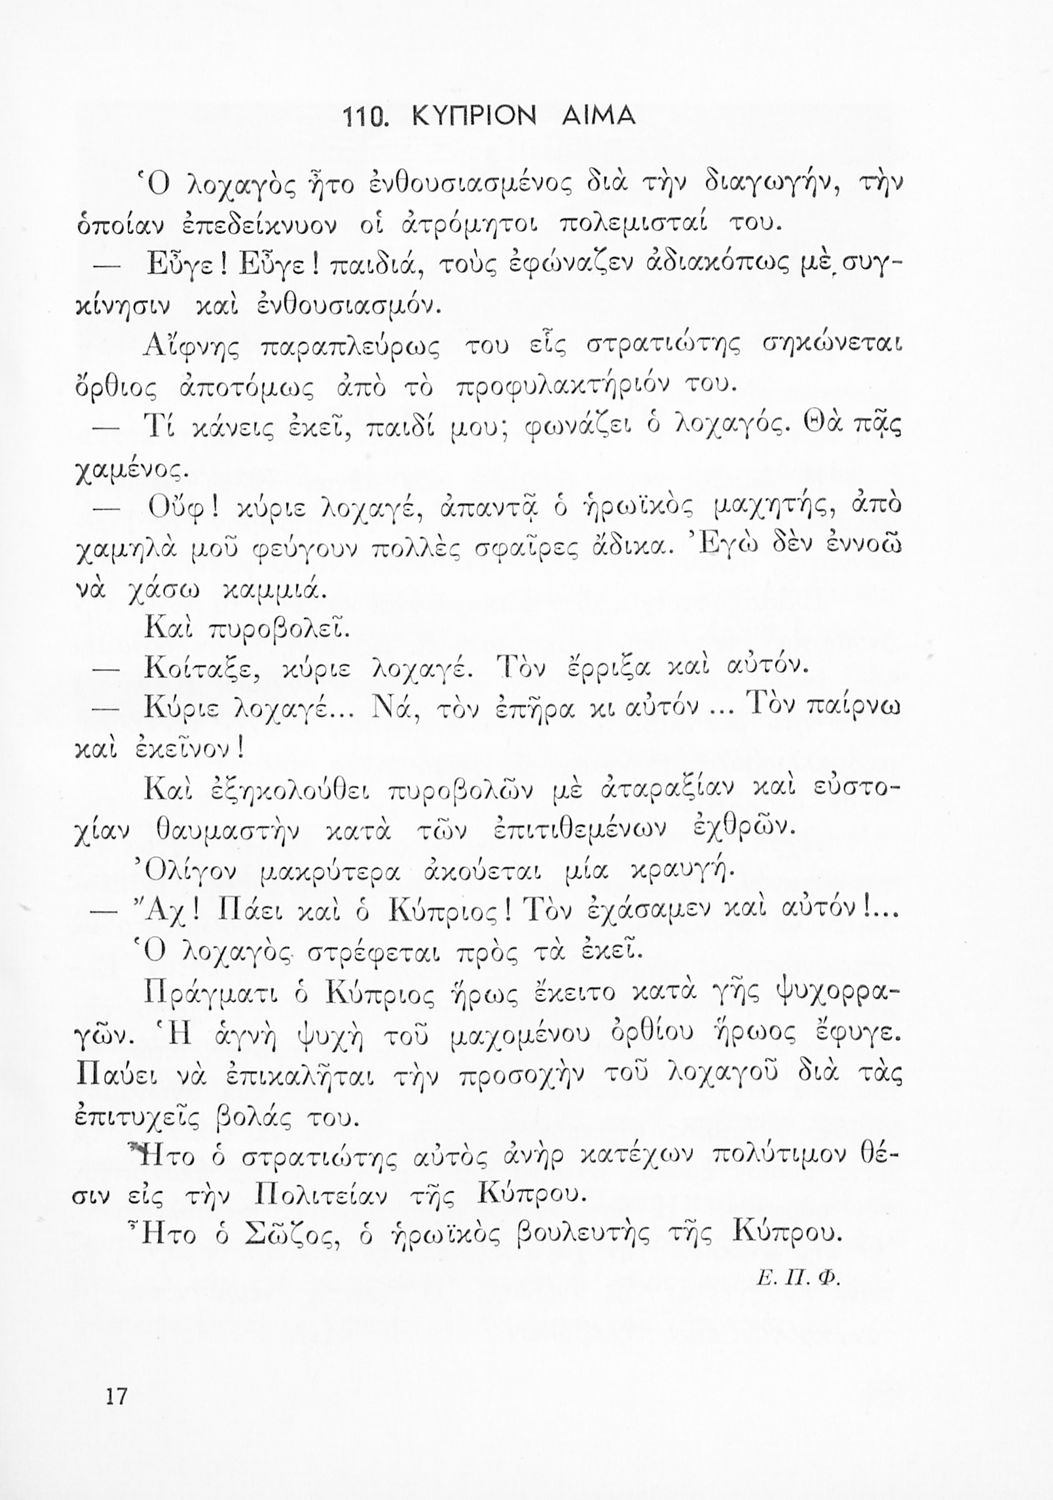 110. ΚΥΠΡΙΟΝ ΑΙΜΑ
Ὁ λοχαγὸς ἦτο ἐνθουσιασμένος διὰ τὴν διαγωγήν, τὴν
ὁποίαν ἐπεδείκνυον οἱ ἀτρόμητοι πολεμισταί του.
— Εὖγε! Εὖγε! παιδιά, τοὺς ἐφώναζεν ἀδιακόπως μὲ συγ-
κίνησιν καὶ ἐνθουσιασμόν.
Αἴφνης παραπλεύρως του εἷς στρατιώτης σηκώνεται
ὄρθιος ἀποτόμως ἀπὸ τὸ προφυλακτήριόν του.
— Τί κάνεις ἐκεῖ, παιδί μου; φωνάζει ὁ λοχαγός. Θὰ πᾷς
χαμένος.
— Οὔφ! κύριε λοχαγέ, ἀπαντᾷ ὁ ἡρωϊκὸς μαχητής, ἀπὸ
χαμηλὰ μοῦ φεύγουν πολλὲς σφαῖρες ἄδικα. Ἐγὼ δὲν ἐννοῶ
νὰ χάσω καμμιά.
Καὶ πυροβολεῖ.
— Κοίταξε, κύριε λοχαγέ. Τὸν ἔρριξα καὶ αὐτόν.
— Κύριε λοχαγέ... Νά, τὸν ἐπῆρα κι αὐτόν ... Τὸν παίρνω
καὶ ἐκεῖνον!
Καὶ ἐξηκολούθει πυροβολῶν μὲ ἀταραξίαν καὶ εὐστο-
χίαν θαυμαστὴν κατὰ τῶν ἐπιτιθεμένων ἐχθρῶν.
Ὀλίγον μακρύτερα ἀκούεται μία κραυγή.
— Ἄχ! Πάει καὶ ὁ Κύπριος! Τὸν ἐχάσαμεν καὶ αὐτόν!...
Ὁ λοχαγὸς στρέφεται πρὸς τὰ ἐκεῖ.
Πράγματι ὁ Κύπριος ἥρως ἔκειτο κατὰ γῆς ψυχορρα-
γῶν. Ἡ ἁγνὴ ψυχὴ τοῦ μαχομένου ὀρθίου ἥρωος ἔφυγε.
Παύει νὰ ἐπικαλῆται τὴν προσοχὴν τοῦ λοχαγοῦ διὰ τὰς
ἐπιτυχεῖς βολάς του.
Ἦτο ὁ στρατιώτης αὐτὸς ἀνὴρ κατέχων πολύτιμον θέ-
σιν εἰς τὴν Πολιτείαν τῆς Κύπρου.
Ἦτο ὁ Σῶζος, ὁ ἡρωϊκὸς βουλευτὴς τῆς Κύπρου.
Ε. Π. Φ.
17